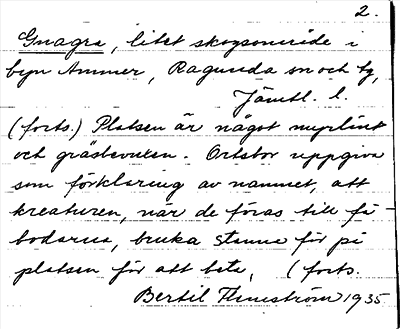 2.
Gnagra, litet skogsområde i
byn Ammer, Ragunda sn och tg,
Jämtl. l.
(forts.) Platsen är något myrlänt
och gräsbevuxen. Ortsbor uppgiva
som förklaring av namnet, att
kreaturen, när de föras till fä-
bodarna, bruka stanna för på
platsen för att beta. (forts.
Bertil Flemström 1935